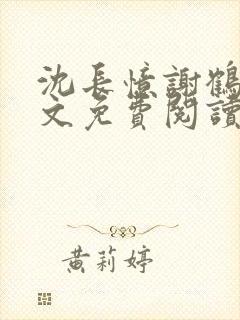 沈長憶謝鶴
文免費閱讀
黃莉婷